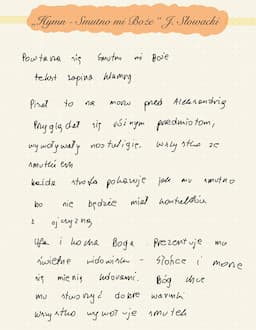 „Hymn - Smutno mi Boże" J. Słowacki
Powtarza się Smutno mi Boże
tekst zapina klamrą
Pisał to na morzu przed Aleksandrią
Przyglądał się różnym przedmiotom,
wywoływały nostalgię. Wszystko ze
smutkiem
każda strofa pokazuje jak mu smutno
bo nie będzie miał kontaktu
z ojczyzną
Ufa i kocha Boga. Prezentuje mu
świetne widowisko - słońce i morze
się mienią kolorami. Bóg chce
mu stworzyć dobre warunki
wszystko wywołuje smutek